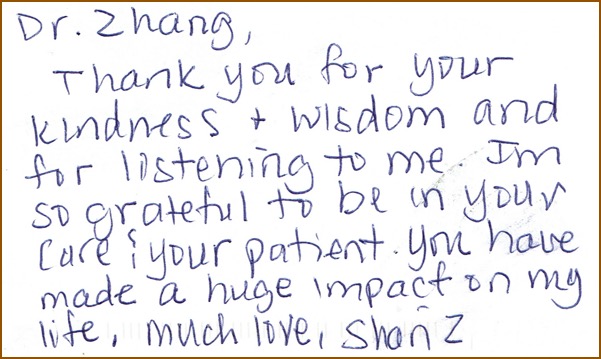 Dr. Zhang,
Thank you for your
kindness + wisdom and
for listening to me. I'm
so grateful to be in your
care & your patient. You have
made a huge impact on my
life, much love, Shan Z